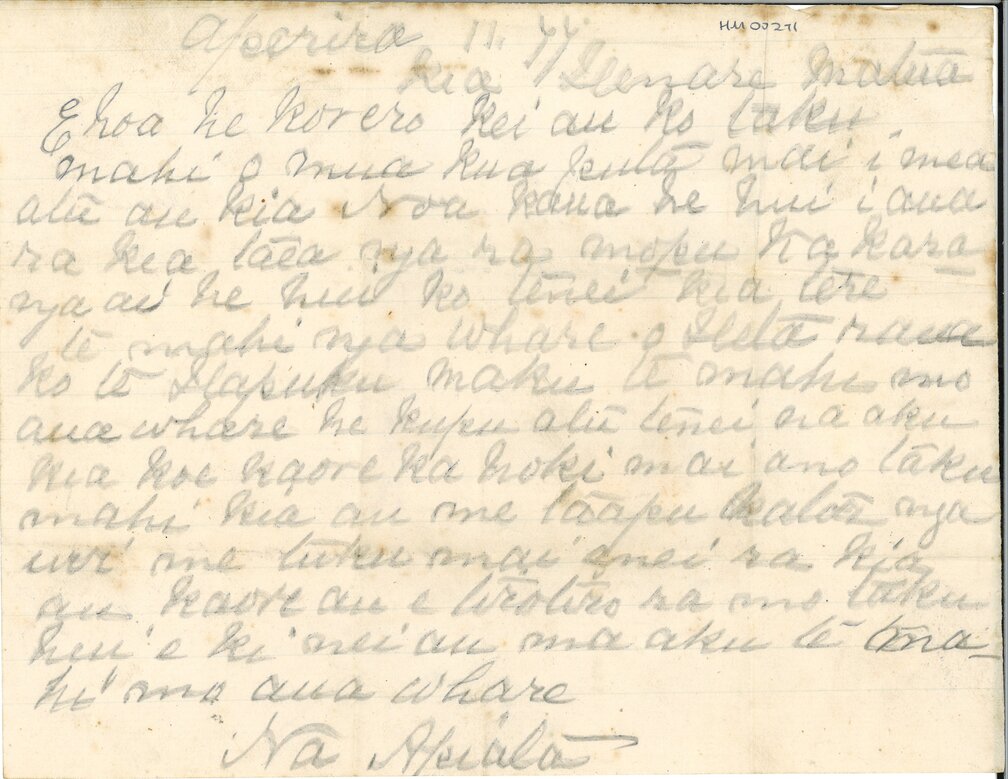 HM00271
Aperira 11. 77
Kia Henare Matua
E hoa he korero kei au ko taku
mahi o mua kua puta mai i mea
atu au kia Noa kaua he hui i aua
ra kia taea nga ra mopu Ka kara
nga ai he hui ko tenei kia tere
te mahi nga whare o Heta raua
ko te Hapuku maku te mahi mo
aua whare he kupu atu tenei na aku
kia koe kaore ka hoki mai ano taku
mahi kia au me taapu katoa nga
uri me tuku mai enei ra kia
au kaore au e tirotiro ra mo taku
hui e ki nei au ma aku te ma-
hi mo aua whare
Na Apiata